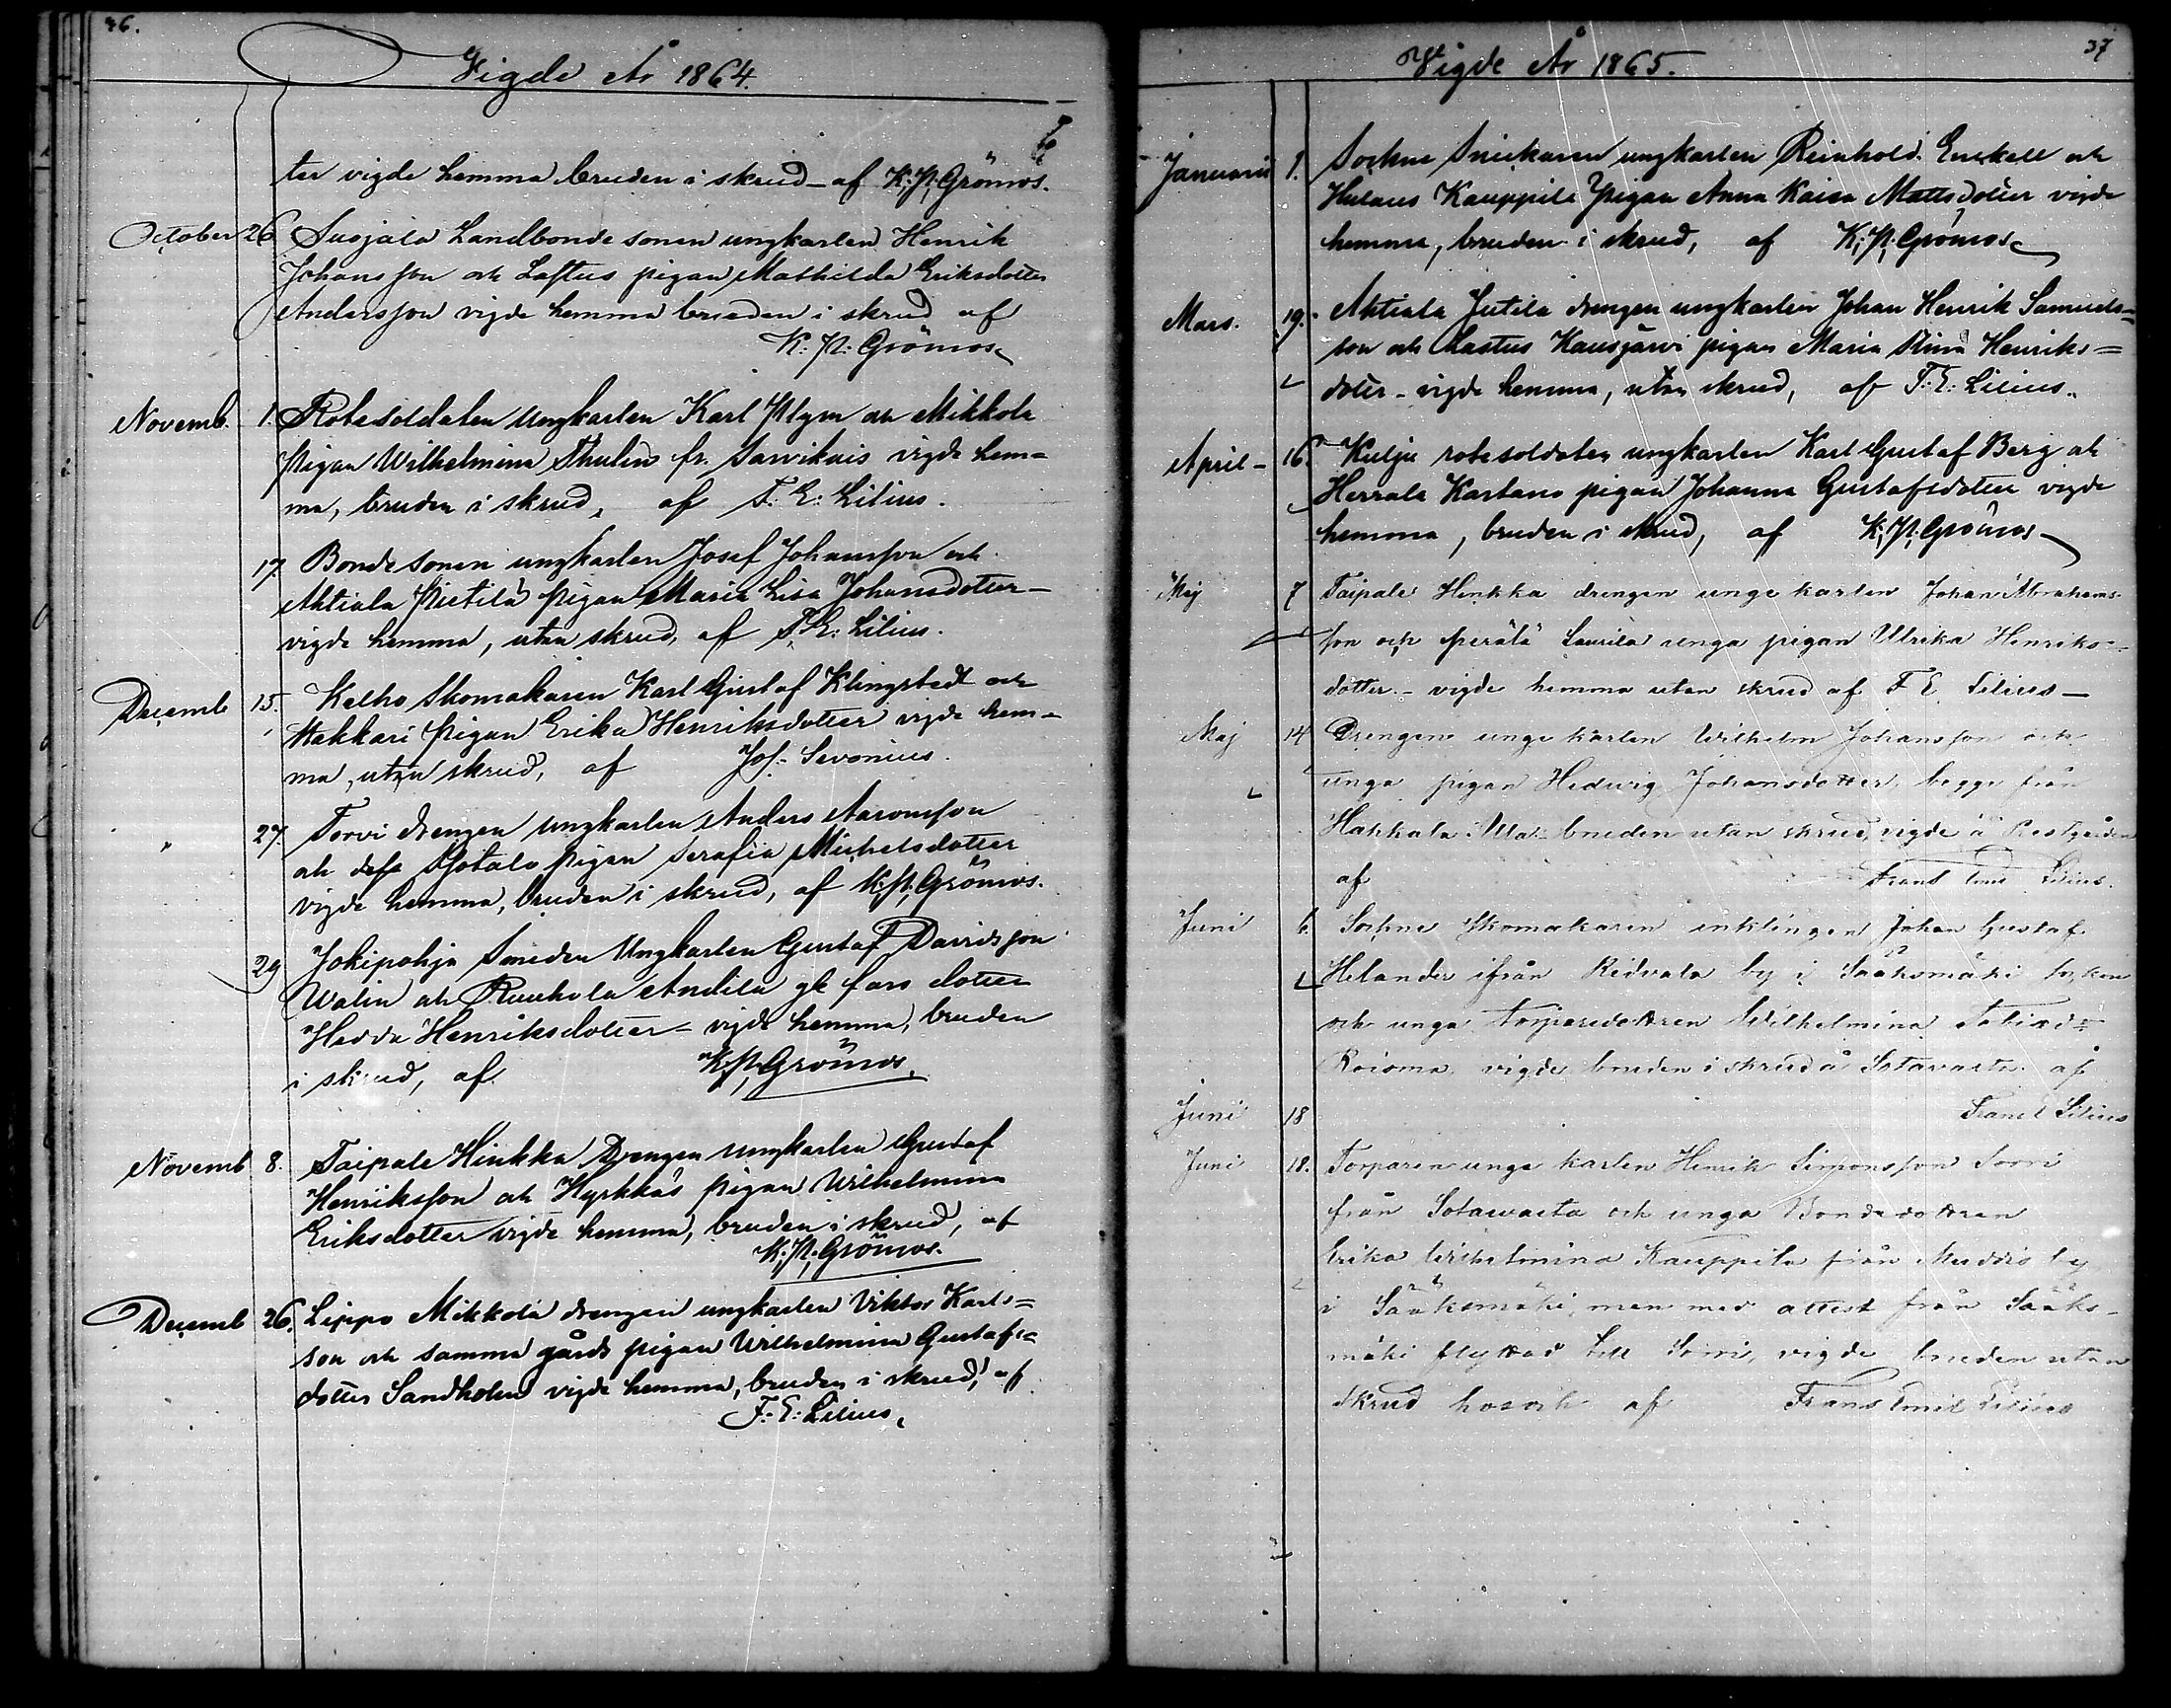 36.
Vigde År 1864.
ter vigde hemma bruden i skrud af K: A: Grönros.
October 26 Suojala Landbonde sonen ungkarlen Henrik
Johansson och Laftus pigan Mathilda Eriksdotter
Andersson vigde hemma bruden i skrud af
K: A: Grönros
Novemb. 1. Rotesoldaten Ungkarlen Karl Plym och Mikkola
Pigan Wilhelmina Thulin fr. Sarvikais vigde hem=
ma, bruden i skrud, af F: E: Lilius.
17. Bondesonen ungkarlen Josef Johansson och
Ahtiala Pietilä pigan Maria Lisa Johansdotter
vigde hemma, utan skrud, af F: E: Lilius.
Decemb 15. Kelho Skomakaren Karl Gustaf Klingstedt och
Makkari Pigan Erika Henriksdotter vigde hem=
ma, utan skrud, af Jos: Sevonius.
" 27. Torvi drengen ungkarlen Anders Aaronsson
och Sjotala pigan Serafia Michelsdotter
vigde hemma, bruden i skrud, af K: A: Grönros.
29 Jokipohja Smeden Ungkarlen Gustaf Davidsson
Walin och Ruuhola Andila gl fars dotter
Hedda Henriksdotter vigde hemma, bruden
i skrud, af K: A: Grönros.
Novemb 8. Taipale Hinkka Drengen ungkarlen Gustaf
Henriksson och Hyrkkäs pigan Wilhelmina
Eriksdotter vigde hemma, bruden i skrud, af
K: A: Grönros.
Decemb 26. Lippo Mikkola drengen ungkarlen Viktor Karls=
son och samma gårds pigan Wilhelmina Gustafs=
dotter Sandholm vigde hemma, bruden i skrud, af
F: E: Lilius.
37
Vigde År 1865.
Januarii 1. Sockne Snickaren ungkarlen Reinhold Enekell och
Hulaus Kauppila Pigan Anna Kaisa Mattsdotter vigde
hemma, bruden i skrud, af K: A: Grönros
Mars. 19. Ahtiala Jutila drengen ungkarlen Johan Henrik Samuels=
son och Lastus Kausjärvi pigan Maria Stina Henriks=
dotter vigde hemma, utan skrud, af F: E: Lilius.
April 16. Kulju rotesoldaten ungkarlen Karl Gustaf Berg och
Herrala Kartano pigan Johanna Gustafsdotter vigde
hemma, bruden i skrud, af K: A: Grönros
Maj 7 Taipale Hinkka drengen unge karlen Johan Abrahams-
son och Perälä Laurila unga pigan Ulrika Henriks-
dotter. vigde hemma utan skrud af F E Lilius
Maj 14 Drengen unge karlen Wilhelm Johansson och
unga pigan Hedvig Johansdotter, begge från
Hakkala Alla bruden utan skrud, vigde å Prestgården
af Frans Emil Lilius.
Juni 6. Sockne Skomakaren enklingen Johan Gustaf
Helander ifrån Ridvala by i Sääksmäki socken
och unga torparedottren Wilhelmina
Roisma vigde bruden i skrud å Sotavalta af
Juni 18 Frans E Lilius
Juni 18. Torparen unge karlen Henrik Simonsson Sorri
från Sotawalta och unga Bondedottren
Erika Wilhelmina Kauppila från by
i Sääksmäki, men med attest från Sääks-
mäki flyttad till Sorri, vigde bruden utan
skrud af Frans Emil Lilius